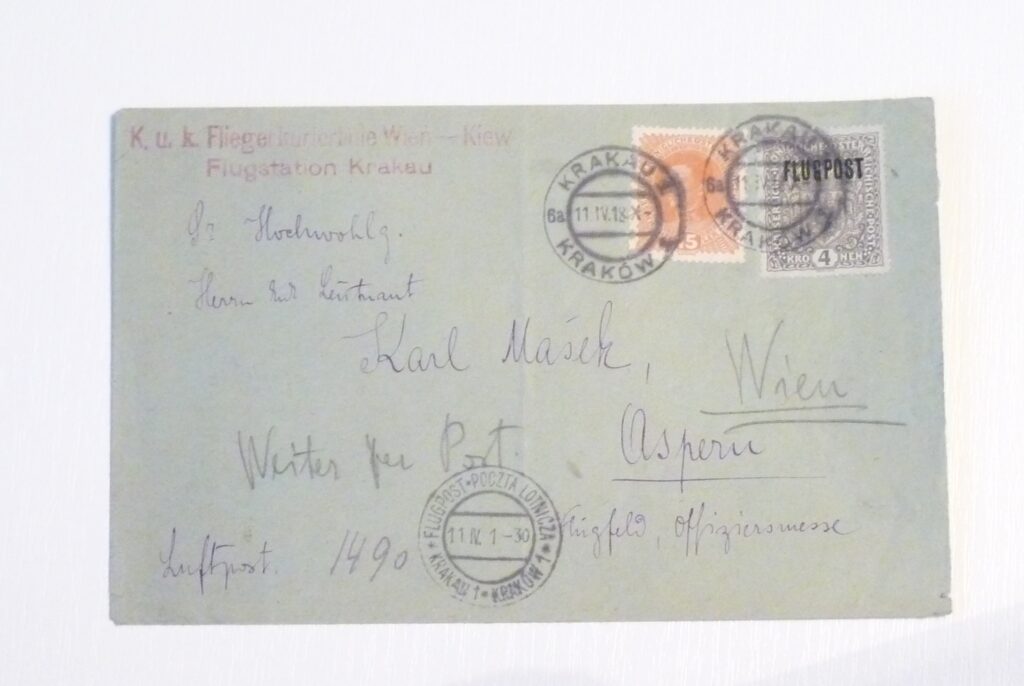 K. u. k. Fliegerkurierlinie Wien—Kiew
Flugstation Krakau
KRAKAU 1
6a 11 IV.18-X-
KRAKÓW 1
15
KRAKAU 1
6a 11
KRAKÓW 1
FLUGPOST
KRO 4 NEN
Sr Hochwohlg.
Herrn Leutnant
Karl Mašek,
Wien
Aspern
Weiter per Post.
Flugfeld, Offiziersmesse
Luftpost. 1490
FLUGPOST * POCZTA LOTNICZA
11 IV. 1 -30
* KRAKAU 1 * KRAKÓW 1 *